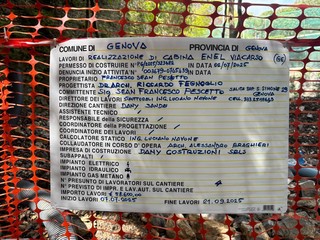 COMUNE DI GENOVA PROVINCIA DI GENOVA
LAVORI DI REALIZZAZIONE DI CABINA ENEL VIACARSO (GE)
PERMESSO DI COSTRUIRE N° IN DATA 02/07/2025
DENUNCIA INIZIO ATTIVITA' N° IN DATA
PROPRIETARIO FRANCESCO JEAN PESCETTO
PROGETTISTA DR.ARCH. RODOLFO
COMMITTENTE SIG. JEAN FRANCESCO PESCETTO SALITA SUP. S. SIMONE 29
GENOVA
DIRETTORE DEI LAVORI ING. LUCIANO NAVONE CELL.
DIREZIONE CANTIERE DANY
ASSISTENTE TECNICO /
RESPONSABILE della SICUREZZA /
COORDINATORE della PROGETTAZIONE /
COORDINATORE DEI LAVORI
CALCOLATORE STATICO ING. LUCIANO NAVONE
COLLAUDATORE IN CORSO D'OPERA ARCH. ALESSANDRO BRAGHIERI
IMPRESA DI COSTRUZIONE DANY COSTRUZIONI SRLS
SUBAPPALTI /
IMPIANTO ELETTRICO
IMPIANTO IDRAULICO
IMPIANTO GAS METANO
N° PRESUNTO DI LAVORATORI SUL CANTIERE
N° PREVISTO DI IMPR. E LAV. AUT. SUL CANTIERE
IMPORTO LAVORI €
INIZIO LAVORI 07.07.2025 FINE LAVORI 21.09.2025